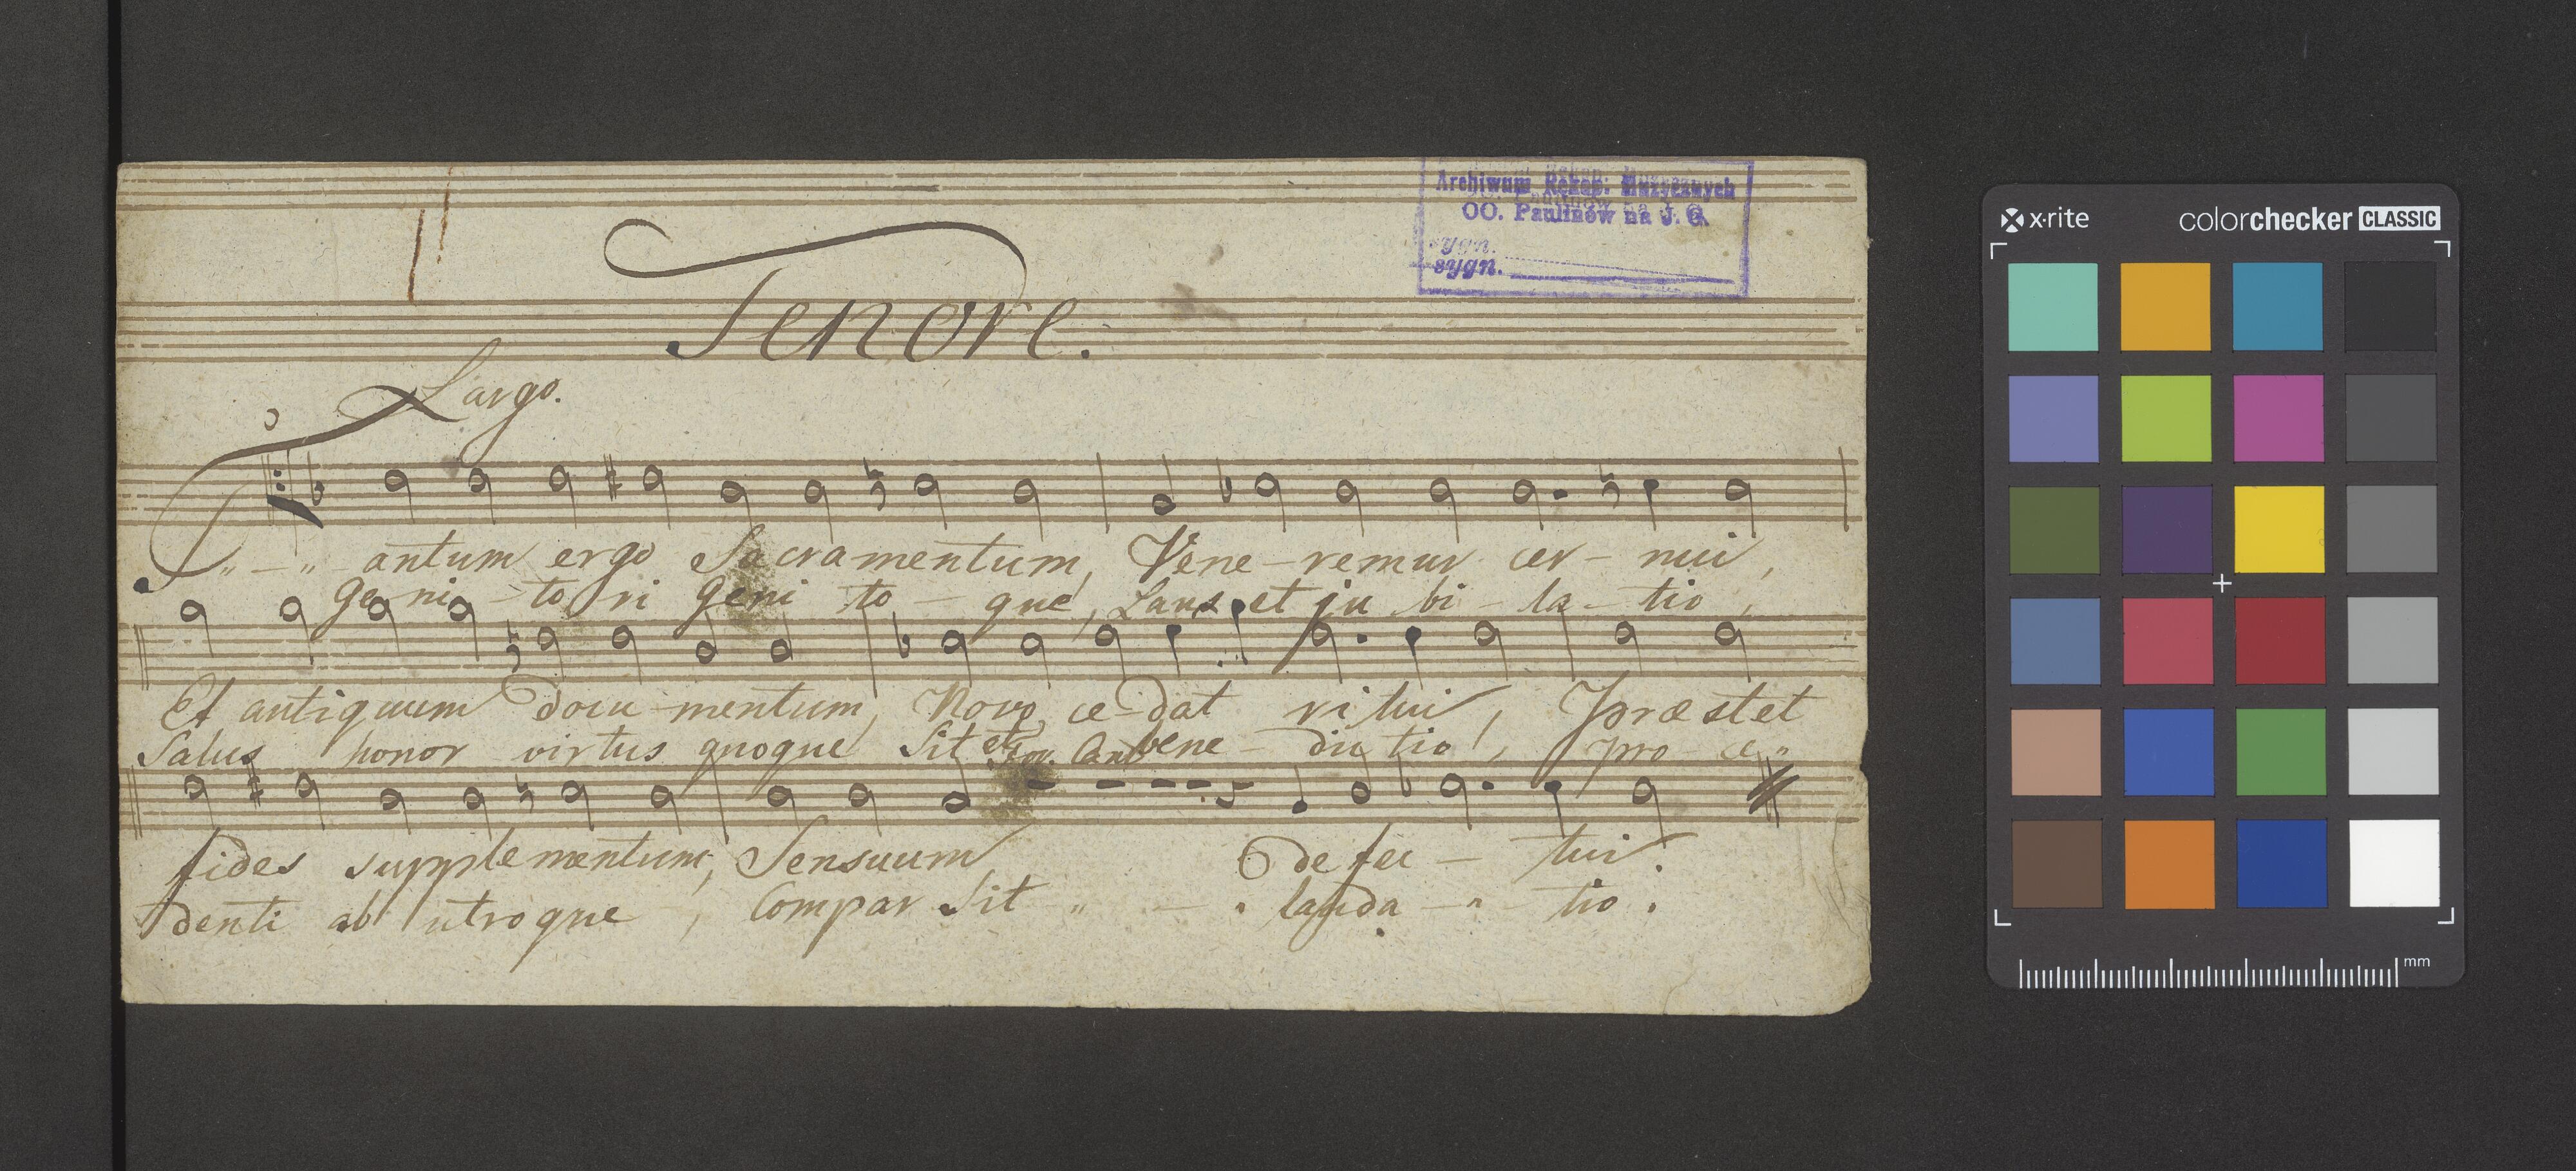 Archiwum Rękop. Muzycznych
OO. Paulinów na J. G.
sygn.
sygn.
Tenore.
Largo.
T„ - „ antum ergo Sacramentum, Vene-remur cer- nui,
geni - to ri geni to - que, Laus et ju bi - la - tio,
Et antiquum docu-mentum, Novo ce-dat ritui, Præstet
Salus honor virtus quoque Sit et bene - dic tio, pro ce„
fides supplementum, Sensuum defec - tui.
denti ab utroque, Compar Sit „ - „ lauda - „ - tio.
x·rite colorchecker CLASSIC
mm